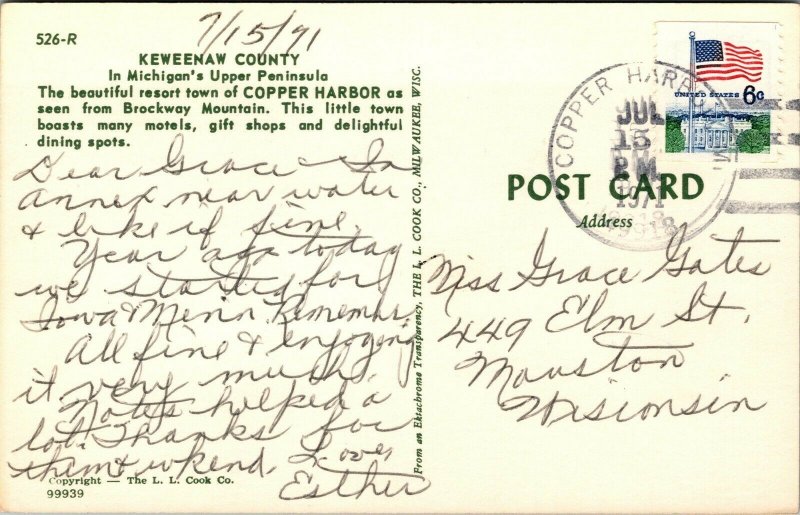 7/15/71
526-R
KEWEENAW COUNTY
In Michigan's Upper Peninsula
The beautiful resort town of COPPER HARBOR as
seen from Brockway Mountain. This little town
boasts many motels, gift shops and delightful
dining spots.
Dear Grace - In
annex near water
& like it fine.
Year ago today
we started for
Iowa Minn Remember
All fine & enjoying
it very much.
Notes helped a
lot. Thanks for
them & wkend.
Love,
Esther
Copyright — The L. L. Cook Co.
99939
From an Ektachrome Transparency, THE L. L. COOK CO., MILWAUKEE, WISC.
UNITED STATES 6c
COPPER HARBOR, MI
JUL
15
PM
1971
49918
POST CARD
Address
Miss Grace Gates
449 Elm St.
Mauston
Wisconsin